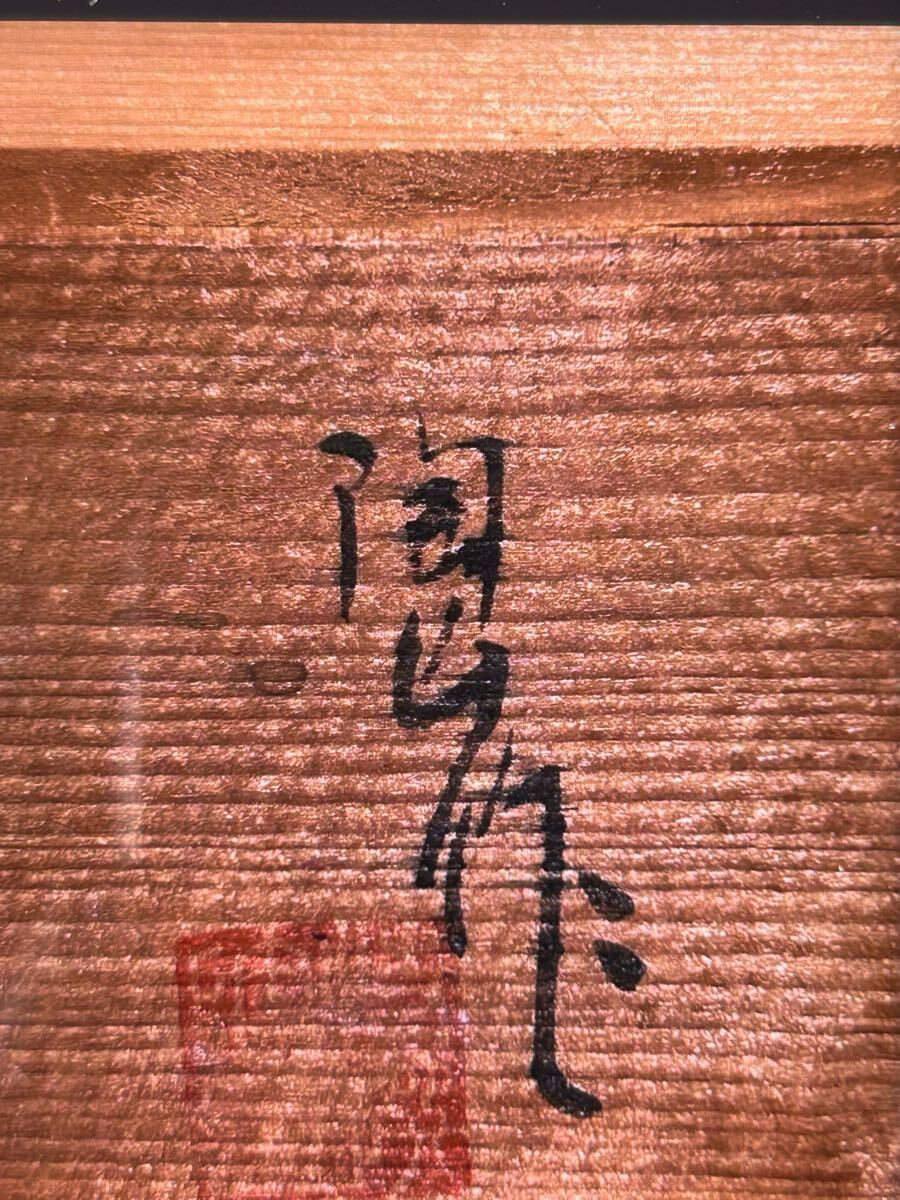 陶山作